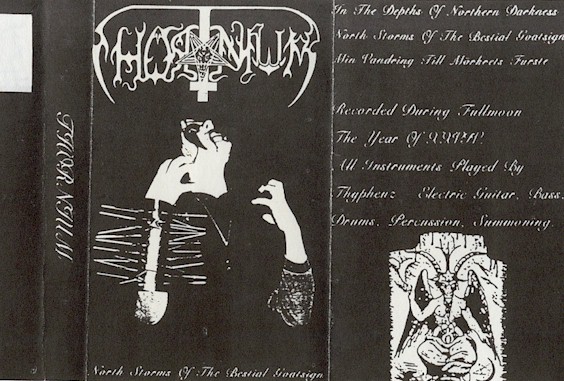 THORNIUM
THORNIUM
North Storms Of The Bestial Goatsign
In The Depths Of Northern Darkness
North Storms Of The Bestial Goatsign
Min Vandring Till Mörkrets Furste
Recorded During Fullmoon
The Year Of
All Instruments Played By
Thyphenz Electric Guitar, Bass,
Drums, Percussion, Summoning.